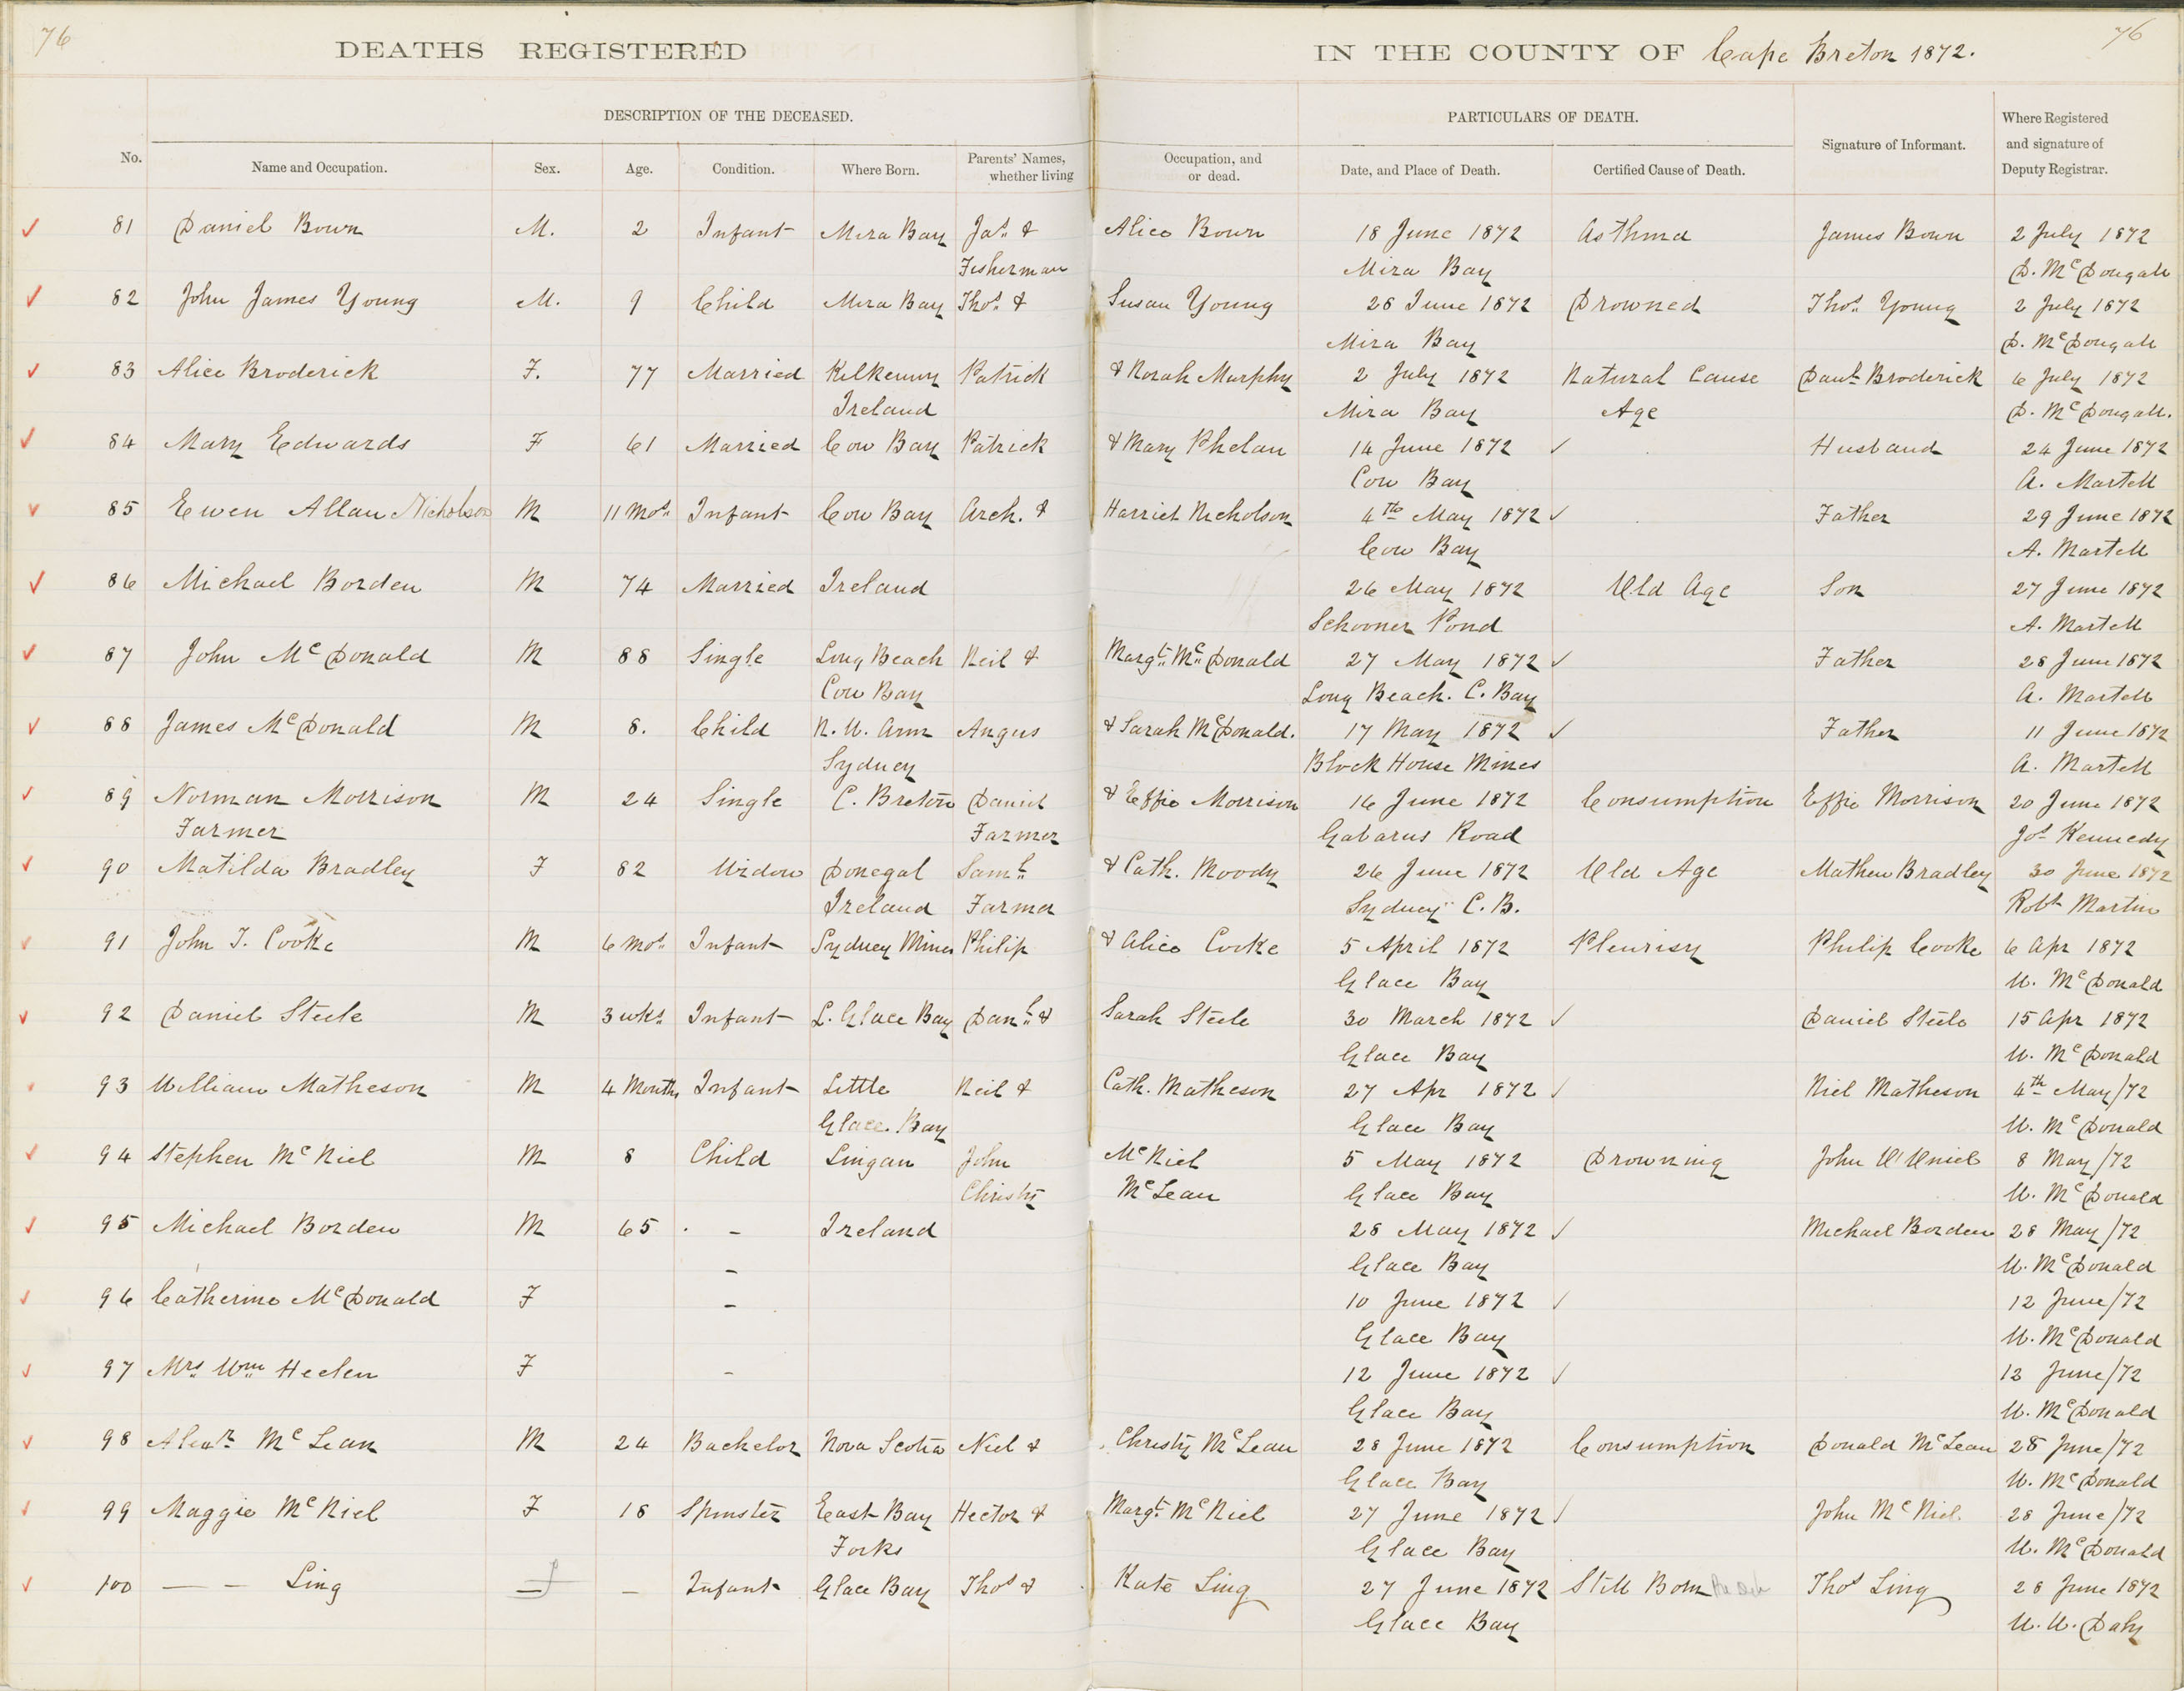 76 76
DEATHS REGISTERED IN THE COUNTY OF Cape Breton 1872.
DESCRIPTION OF THE DECEASED. PARTICULARS OF DEATH. Where Registered and signature of Deputy Registrar.
No. Name and Occupation. Sex. Age. Condition. Where Born. Parents' Names, whether living Occupation, and or dead. Date, and Place of Death. Certified Cause of Death. Signature of Informant.
81 Daniel Bown M. 2 Infant Mira Bay Jas. & Alice Bown 18 June 1872 Asthma James Bown 2 July 1872
Fisherman Mira Bay D. McDougall
82 John James Young M. 9 Child Mira Bay Thos. & Susan Young 28 June 1872 Drowned Thos. Young 2 July 1872
Mira Bay D. McDougall
83 Alice Broderick F. 77 Married Kilkenny Patrick & Norah Murphy 2 July 1872 Natural Cause Danl. Broderick 6 July 1872
Ireland Mira Bay Age D. McDougall.
84 Mary Edwards F 61 Married Cow Bay Patrick & Mary Phelan 14 June 1872 ✓ Husband 24 June 1872
Cow Bay A. Martell
85 Ewen Allan Nicholson M 11 Mos. Infant Cow Bay Arch. & Harriet Nicholson 4th May 1872 ✓ Father 29 June 1872
Cow Bay A. Martell
86 Michael Borden M 74 Married Ireland 26 May 1872 Old Age Son 27 June 1872
Schooner Pond A. Martell
87 John McDonald M 88 Single Long Beach Neil & Margt. McDonald 27 May 1872 ✓ Father 28 June 1872
Cow Bay Long Beach. C. Bay A. Martell
88 James McDonald M 8. Child N.W. Arm Angus & Sarah McDonald. 17 May 1872 ✓ Father 11 June 1872
Sydney Block House Mines A. Martell
89 Norman Morrison M 24 Single C. Breton Daniel & Effie Morrison 16 June 1872 Consumption Effie Morrison 20 June 1872
Farmer Farmer Gabarus Road Jos. Kennedy
90 Matilda Bradley F 82 Widow Donegal Saml. & Cath. Moody 26 June 1872 Old Age Mathew Bradley 30 June 1872
Ireland Farmer Sydney C. B. Robt Martin
91 John T. Cooke M 6 Mos. Infant Sydney Mines Philip & Alice Cooke 5 April 1872 Pleurisy Philip Cooke 6 Apr 1872
Glace Bay W. McDonald
92 Daniel Steele M 3 wks. Infant L. Glace Bay Danl. & Sarah Steele 30 March 1872 ✓ Daniel Steele 15 Apr 1872
Glace Bay W. McDonald
93 William Matheson M 4 Months Infant Little Neil & Cath. Matheson 27 Apr 1872 ✓ Niel Matheson 4th May/72
Glace Bay Glace Bay W. McDonald
94 Stephen McNiel M 8 Child Lingan John McNiel 5 May 1872 Drowning John 8 May/72
Christy McLean Glace Bay W. McDonald
95 Michael Borden M 65 – Ireland 28 May 1872 ✓ Michael Borden 28 May/72
– Glace Bay W. McDonald
96 Catherine McDonald F – 10 June 1872 ✓ 12 June/72
Glace Bay W. McDonald
97 Mrs. Wm. Heelen F – 12 June 1872 ✓ 12 June/72
Glace Bay W. McDonald
98 Alexr. McLean M 24 Bachelor Nova Scotia Niel & Christy McLean 28 June 1872 Consumption Donald McLean 28 June/72
Glace Bay W. McDonald
99 Maggie McNiel F 18 Spinster East Bay Hector & Margt. McNiel 27 June 1872 ✓ John McNiel. 28 June/72
Forks Glace Bay W. McDonald
100 — – Ling – – Infant Glace Bay Thos & Kate Ling 27 June 1872 Still Born Thos Ling 28 June 1872
Glace Bay W. W. Daly